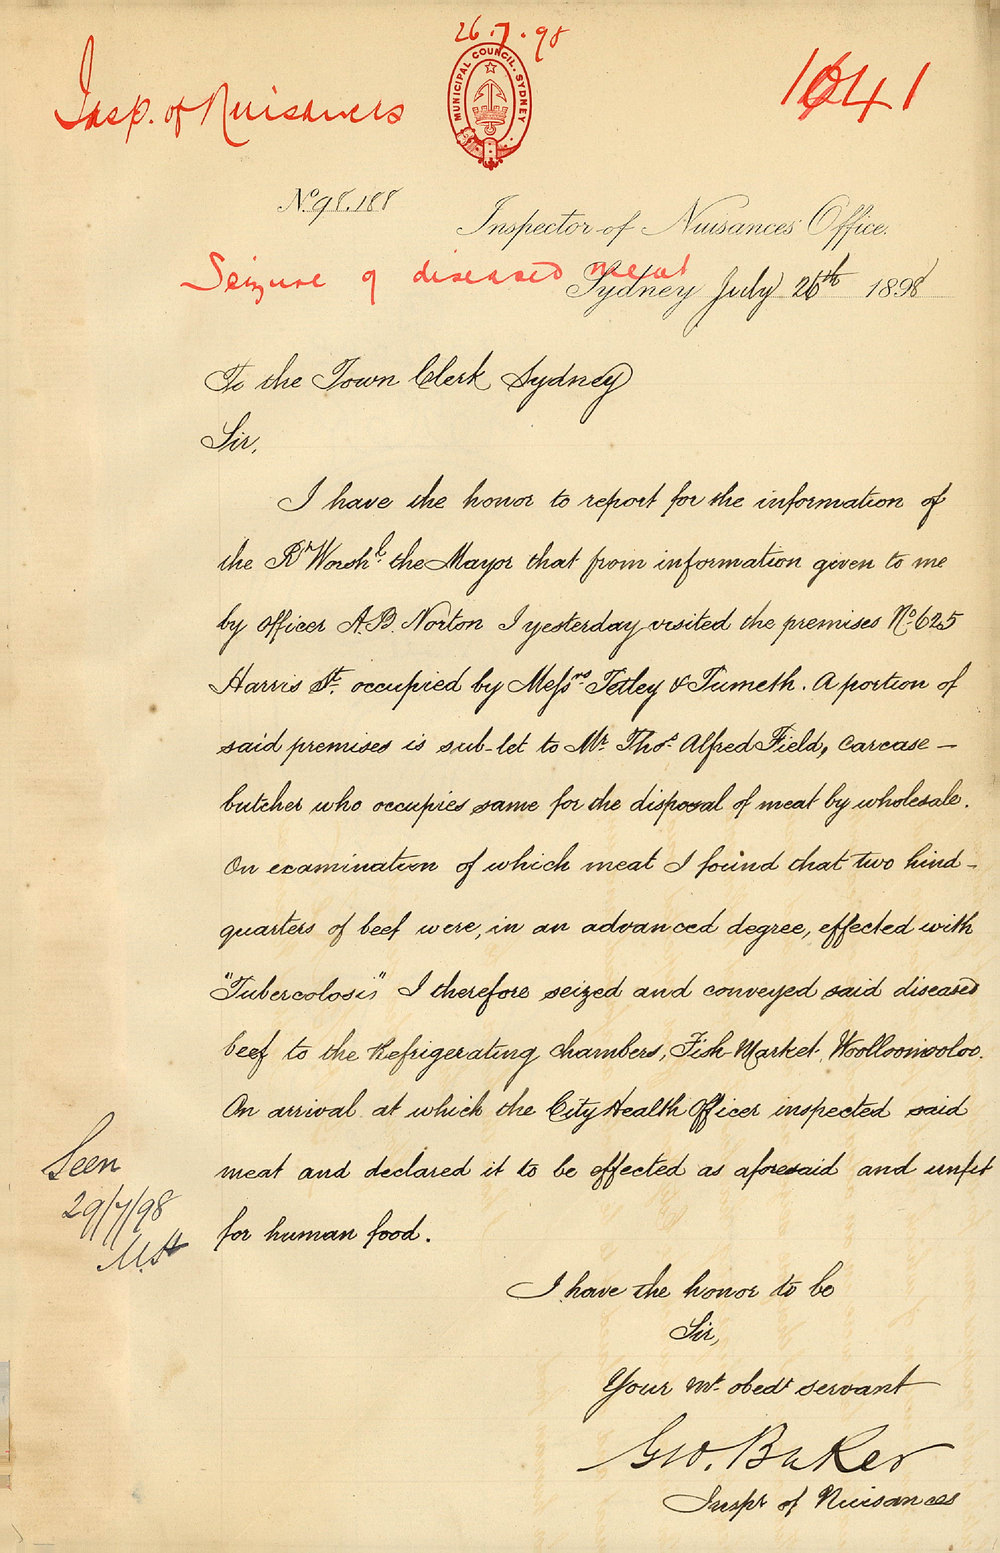 26.7.98
Insp. of Nuisances
MUNICIPAL COUNCIL. SYDNEY
1641
No. 98.188
Inspector of Nuisances Office.
Seizure of diseased meat
Sydney July 26th 1898
To the Town Clerk Sydney
Sir,
I have the honor to report for the information of
the Rt Worshl. the Mayor that from information given to me
by officer A.B. Norton I yesterday visited the premises No. 625
Harris St. occupied by Messrs Tetley & Tumeth. A portion of
said premises is sub-let to Mr. Thos. Alfred Field, carcase-
butcher who occupies same for the disposal of meat by wholesale.
On examination of which meat I found that two hind-
quarters of beef were, in an advanced degree, effected with
"Tubercolosis" I therefore seized and conveyed said diseased
beef to the Refrigerating Chambers, Fish Market, Woolloomooloo.
On arrival at which the City Health Officer inspected said
meat and declared it to be effected as aforesaid and unfit
for human food.
Seen
29/7/98
I have the honor to be
Sir,
Your mt. obedt servant
Geo. Baker
Inspr of Nuisances